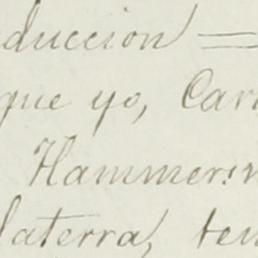 duccion =
que yo, Car
Hammers
laterra, ten